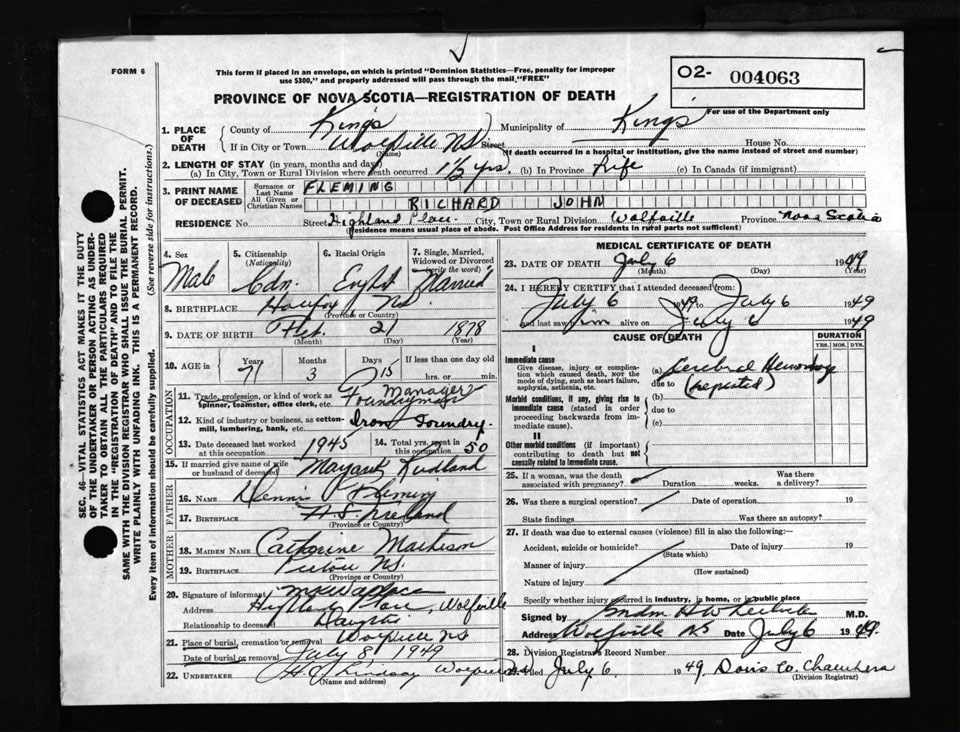 FORM 6
This form if placed in an envelope, on which is printed "Dominion Statistics—Free, penalty for improper
use $300," and properly addressed will pass through the mail, "FREE"
O2- 004063
PROVINCE OF NOVA SCOTIA—REGISTRATION OF DEATH
For use of the Department only
1. PLACE OF DEATH
County of Kings Municipality of Kings
If in City or Town Wolfville NS Street House No.
(Name) (If death occurred in a hospital or institution, give the name instead of street and number)
2. LENGTH OF STAY (in years, months and days)
(a) In City, Town or Rural Division where death occurred 1 1/2 yrs. (b) In Province Life (c) In Canada (if immigrant)
3. PRINT NAME OF DECEASED
Surname or Last Name FLEMING
All Given or Christian Names RICHARD JOHN
RESIDENCE No. Street Highland Place. City, Town or Rural Division Wolfville Province Nova Scotia
(Residence means usual place of abode. Post Office Address for residents in rural parts not sufficient)
4. Sex Male
5. Citizenship (Nationality) Cdn.
6. Racial Origin
7. Single, Married, Widowed or Divorced (write the word) Married
8. BIRTHPLACE Halifax NS
(Province or Country)
9. DATE OF BIRTH Feb. 21 1878
(Month) (Day) (Year)
10. AGE in Years 71 Months 3 Days 15 If less than one day old hrs. or min.
OCCUPATION
11. Trade, profession, or kind of work as spinner, teamster, office clerk, etc. Manager
Foundryman
12. Kind of industry or business, as cotton-mill, lumbering, bank, etc. Iron Foundry.
13. Date deceased last worked at this occupation 1945
14. Total yrs. spent in this occupation 50
15. If married give name of wife or husband of deceased
FATHER
16. NAME Dennis Fleming
17. BIRTHPLACE Ireland
(Province or Country)
MOTHER
18. MAIDEN NAME Catherine Matheson
19. BIRTHPLACE Pictou NS.
(Province or Country)
20. Signature of informant
Address Highland Place, Wolfville
Relationship to deceased Daughter
21. Place of burial, cremation or removal Wolfville NS
Date of burial or removal July 8, 1949
22. UNDERTAKER Lindsay Wolfville
(Name and address)
MEDICAL CERTIFICATE OF DEATH
23. DATE OF DEATH July 6 1949
(Month) (Day) (Year)
24. I HEREBY CERTIFY that I attended deceased from:
July 6 1949 to July 6 1949
and last saw him alive on July 6 1949
CAUSE OF DEATH
DURATION
YRS. MOS. DYS.
I
Immediate cause
Give disease, injury or complication which caused death, not the mode of dying, such as heart failure, asphyxia, asthenia, etc.
(a) Cerebral Hemorrhage
due to (repeated)
Morbid conditions, if any, giving rise to immediate cause (stated in order proceeding backwards from immediate cause).
(b)
due to
(c)
II
Other morbid conditions (if important) contributing to death but not causally related to immediate cause.
25. If a woman, was the death associated with pregnancy? Duration weeks. Was there a delivery?
26. Was there a surgical operation? Date of operation 19
State findings Was there an autopsy?
27. If death was due to external causes (violence) fill in also the following:—
Accident, suicide or homicide? Date of injury 19
(State which)
Manner of injury
(How sustained)
Nature of injury
Specify whether injury occurred in industry, in home, or in public place
Signed by M.D.
Address Wolfville NS Date July 6 1949.
28. Division Registrar's Record Number
Filed July 6 1949 Doris W. Chambers
(Division Registrar)
SEC. 46—VITAL STATISTICS ACT MAKES IT THE DUTY
OF THE UNDERTAKER OR PERSON ACTING AS UNDER-
TAKER TO OBTAIN ALL THE PARTICULARS REQUIRED
IN THE "REGISTRATION OF DEATH" AND TO FILE THE
SAME WITH THE DIVISION REGISTRAR WHO SHALL ISSUE THE BURIAL PERMIT.
WRITE PLAINLY WITH UNFADING INK. THIS IS A PERMANENT RECORD.
Every item of information should be carefully supplied. (See reverse side for instructions.)